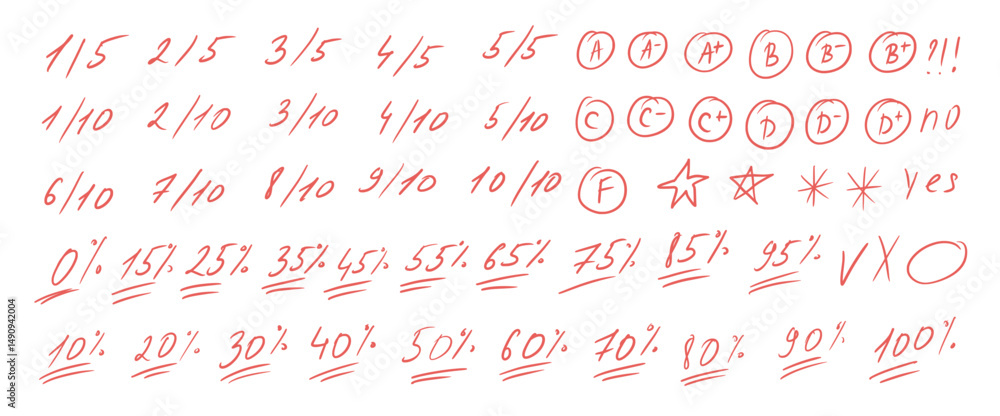 1/5 2/5 3/5 4/5 5/5 A A- A+ B B- B+ ?!!
1/10 2/10 3/10 4/10 5/10 C C- C+ D D- D+ no
6/10 7/10 8/10 9/10 10/10 F yes
0% 15% 25% 35% 45% 55% 65% 75% 85% 95%
10% 20% 30% 40% 50% 60% 70% 80% 90% 100%
Adobe Stock | #1490942004